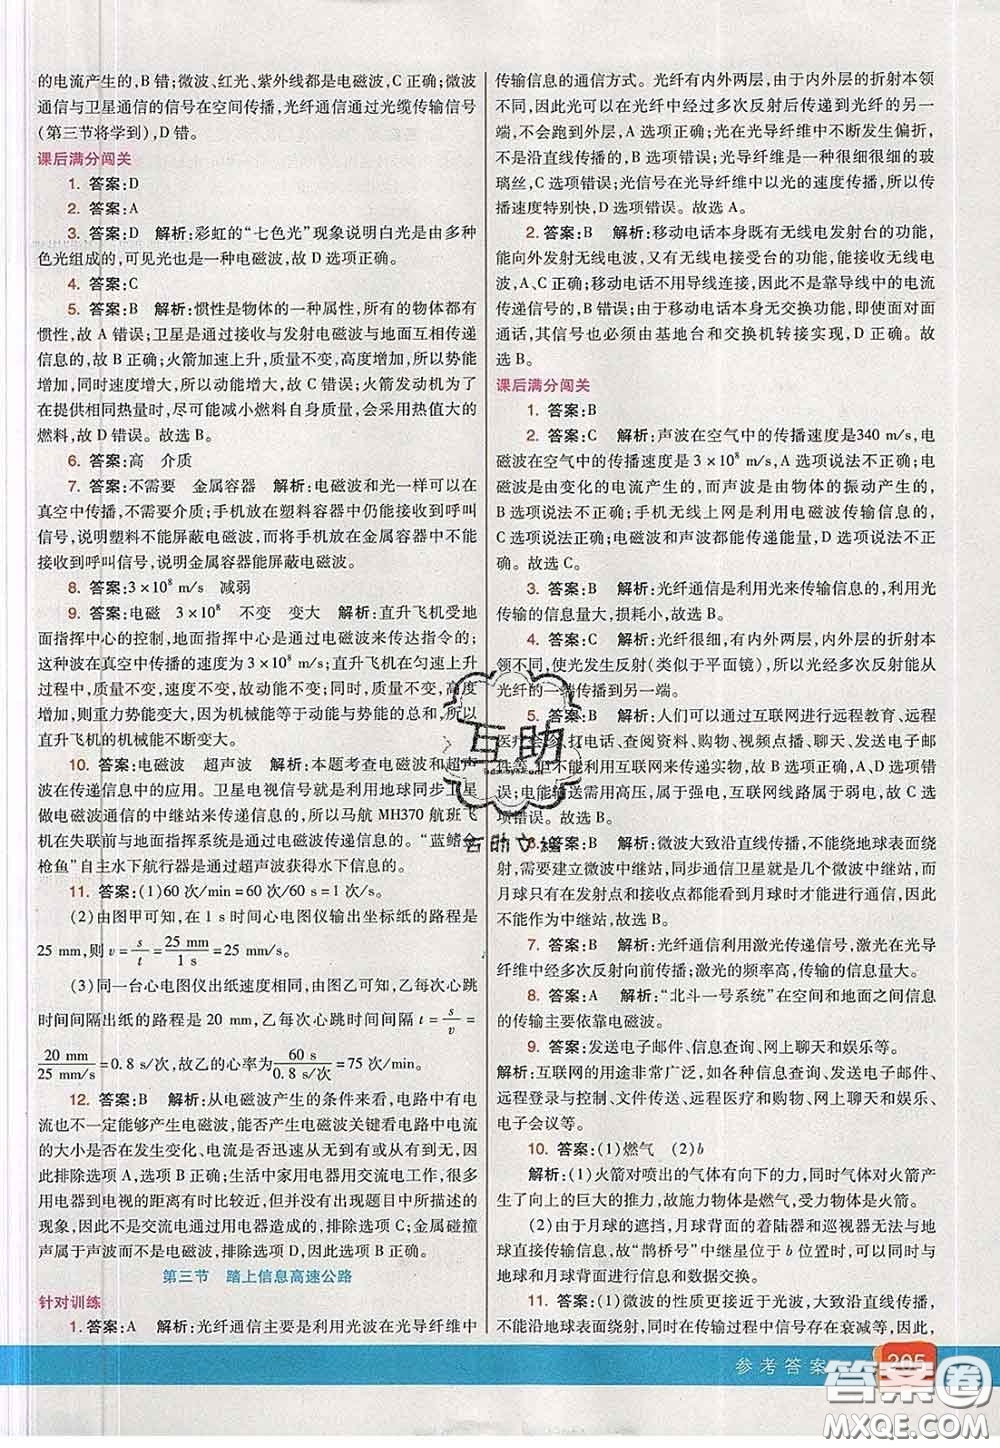 的电流产生的,B错;微波、红光、紫外线都是电磁波,C正确;微波
通信与卫星通信的信号在空间传播,光纤通信通过光缆传输信号
(第三节将学到),D错。
课后满分闯关
1. 答案:D
2. 答案:A
3. 答案:D 解析:彩虹的“七色光”现象说明白光是由多种
色光组成的,可见光也是一种电磁波,故D选项正确。
4. 答案:C
5. 答案:B 解析:惯性是物体的一种属性,所有的物体都有
惯性,故A错误;卫星是通过接收与发射电磁波与地面互相传递
信息的,故B正确;火箭加速上升,质量不变,高度增加,所以势能
增加,同时速度增大,所以动能增大,故C错误;火箭发动机为了
在提供相同热量时,尽可能减小燃料自身质量,会采用热值大的
燃料,故D错误。故选B。
6. 答案:高 介质
7. 答案:不需要 金属容器 解析:电磁波和光一样可以在
真空中传播,不需要介质;手机放在塑料容器中仍能接收到呼叫
信号,说明塑料不能屏蔽电磁波,而将手机放在金属容器中不能
接收到呼叫信号,说明金属容器能屏蔽电磁波。
8. 答案:3×10⁸ m/s 减弱
9. 答案:电磁 3×10⁸ 不变 变大 解析:直升飞机受地
面指挥中心的控制,地面指挥中心是通过电磁波来传达指令的;
这种波在真空中传播的速度为3×10⁸ m/s;直升飞机在匀速上升
过程中,质量不变,速度不变,故动能不变;由于质量不变,高度增
加,则重力势能变大,因为机械能等于动能与势能的总和,所以
直升飞机的机械能不断变大。
10. 答案:电磁波 超声波 解析:本题考查电磁波和超声
波在信息中的应用。卫星电视信号就是利用地球同步卫星
做电磁波通信的中继站来传递信息的,所以马航MH370航班飞
机在失联前与地面指挥系统是通过电磁波传递信息的。“蓝鳍金
枪鱼”自主水下航行器是通过超声波获得水下信息的。
11. 答案:(1)60次/min=60次/60 s=1次/s。
(2)由图甲可知,在1 s时间心电图仪输出坐标纸的路程是
25 mm,则v=s/t=25 mm/1 s=25 mm/s。
(3)同一台心电图仪出纸速度相同,由图乙可知,乙每次心跳
时间间隔出纸的路程是20 mm,乙每次心跳时间间隔t=s/v=
20 mm/25 mm/s=0.8 s/次,故乙的心率为60 s/0.8 s/次=75次/min。
12. 答案:B 解析:从电磁波产生的条件来看,电路中有电
流也不一定能够产生电磁波,能否产生电磁波关键看电路中电流
的大小是否在发生变化、电流是否迅速从无到有或从有到无,因
此排除选项A,选项B正确;生活中家用电器使用交流电工作,很多
用电器到电视的距离有时比较近,但并未出现题目中所描述的
现象,因此不是交流电通过用电器造成的,排除选项C;金属碰撞
声属于声波而不是电磁波,排除选项D,因此本题的答案为B。
第三节 踏上信息高速公路
针对训练
1. 答案:A 解析:光纤通信主要是利用光波在光导纤维中
传输信息的通信方式。光纤有内外两层,由于内外层的折射本领
不同,因此光在光纤中经过多次反射后传递到光纤的另一端,
不会跑到外层,A选项正确;光在光导纤维中不断发生偏折,
不是沿直线传播的,B选项错误;光导纤维是一种很细很细的玻
璃丝,C选项错误;光信号在光导纤维中以光的速度传播,传播的
速度特别快,D选项错误。故选A。
2. 答案:B 解析:移动电话本身既有无线电发射台的功能,
能向外发射无线电波,又有无线电接受台的功能,能接收无线电
波,C错误;移动电话不用导线连接,因此不是靠导线中的电流
传递信号的,B错误;由于移动电话本身无交换功能,即使面对面
通话,其信号也必须由基地台和交换机转接实现,D正确。故
选B。
课后满分闯关
1. 答案:B
2. 答案:C 解析:声波在空气中的传播速度是340 m/s,电
磁波在空气中的传播速度是3×10⁸ m/s,A选项说法不正确;电
磁波是由变化的电流产生的,而声波是由物体的振动产生的,
B选项说法不正确;手机无线上网是利用电磁波传输信息的,
C选项说法正确;电磁波和声波都能传递能量,D选项说法不正
确。故选C。
3. 答案:B 解析:光纤通信是利用光来传输信息的,利用光
传输的信息量大,损耗小,故选B。
4. 答案:C 解析:光纤很细,有内外两层,内外层的折射本
领不同,使光发生反射(类似于平面镜),所以光经多次反射能从
光纤的一端传播到另一端。
5. 答案:B 解析:人们可以通过互联网进行远程教育、远程
医疗会诊、打电话、查阅资料、购物、视频点播、聊天、发送电子邮
件等,但不能利用互联网来传递实物,故B正确,A、C选项错
误;电能输送需用高压,属于强电,互联网线路属于弱电,故D错
误。故选B。
6. 答案:B 解析:微波大致沿直线传播,不能绕地球表面绕
射,需要建立微波中继站,同步通信卫星就是几个微波中继站,而
月球只有在发射点和接收点都能看到月球时才能进行通信,因此
不能作为中继站,故选B。
7. 答案:B 解析:光纤通信利用激光传递信号,激光在光导
纤维中经多次反射向前传播;激光的频率高,传输的信息量大。
8. 答案:A 解析:“北斗一号系统”在空间和地面之间信息
的传输主要依靠电磁波。
9. 答案:发送电子邮件、信息查询、网上聊天和娱乐等。
解析:互联网的用途非常广泛,如各种信息查询、发送电子邮件、
远程登录与控制、文件传送、远程医疗和购物、网上聊天和娱乐、
电子会议等。
10. 答案:(1)燃气 (2)b
解析:(1)火箭对喷出的气体有向下的力,同时气体对火箭产
生了向上的巨大的推力,故施力物体是燃气,受力物体是火箭。
(2)由于月球的遮挡,月球背面的着陆器和巡视器无法与地
球直接通信,故“鹊桥号”中继星位于b位置时,可以实现同时与
地球和月球背面进行信息和数据交换。
11. 答案:(1)微波的性质更接近于光波,大致沿直线传播,
不能沿地球表面绕射,同时在传输过程中信号存在衰减等,因此,
参考答案 205
互助
答案圈
MXQE.COM